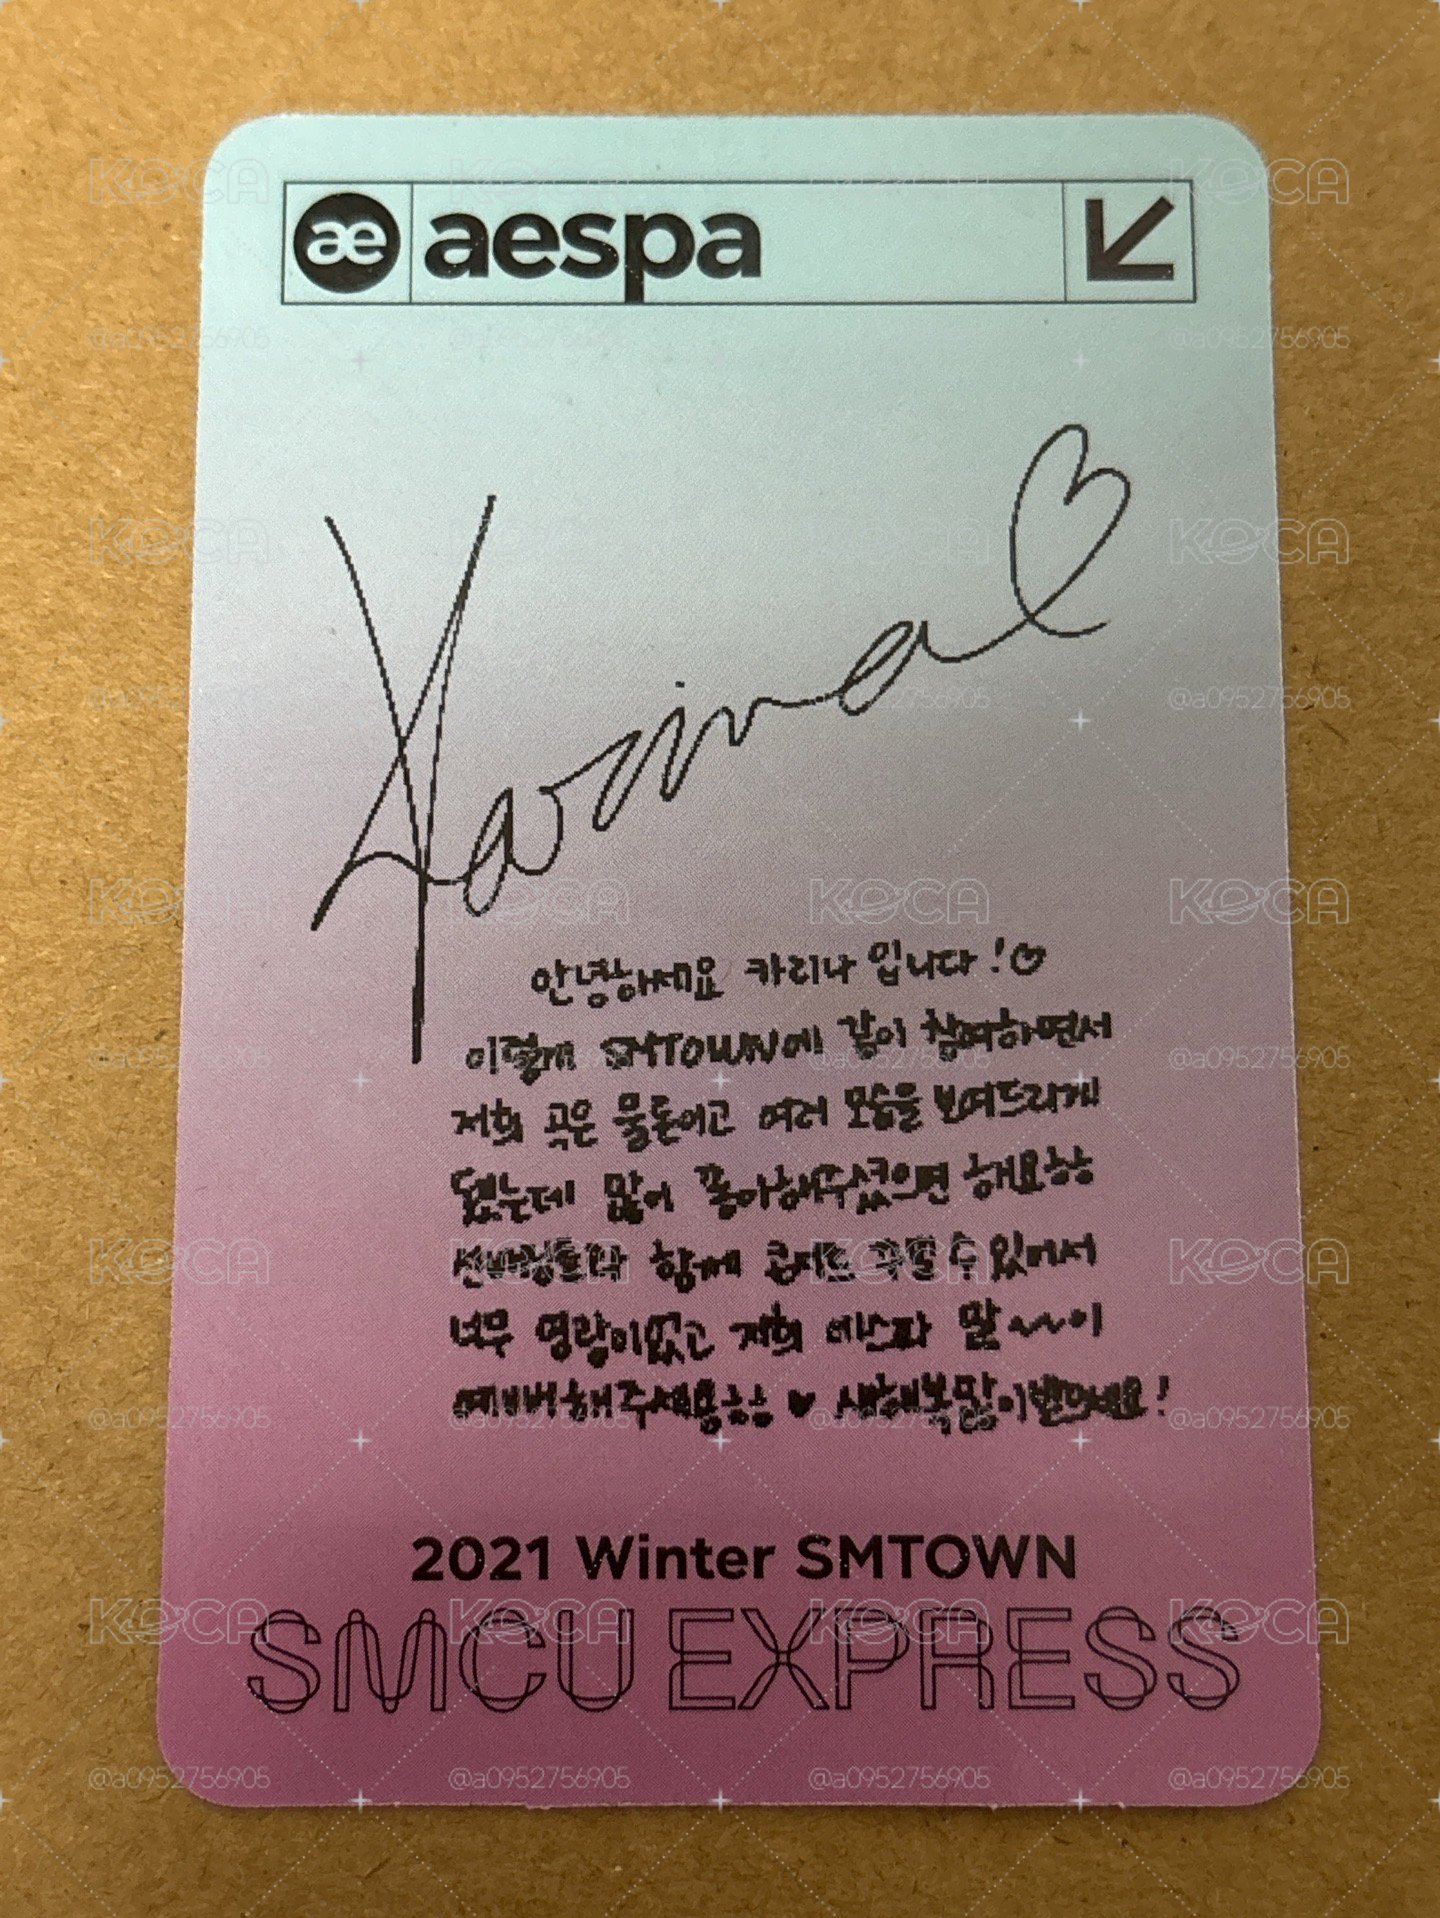 æ aespa
Karina
안녕하세요 카리나 입니다!♡
이렇게 SMTOWN에 같이 참여하면서
저희 곡은 물론이고 여러 모습을 보여드리게
됐는데 많이 좋아해주셨으면 해요ㅎㅎ
선배님들과 함께 콘서트 꾸밀 수 있어서
너무 영광이었고 저희 에스파 많~~이
예뻐해주세용ㅎㅎ ♥ 새해복많이받으세요!
2021 Winter SMTOWN
SMCU EXPRESS
KeCA
@a0952756905